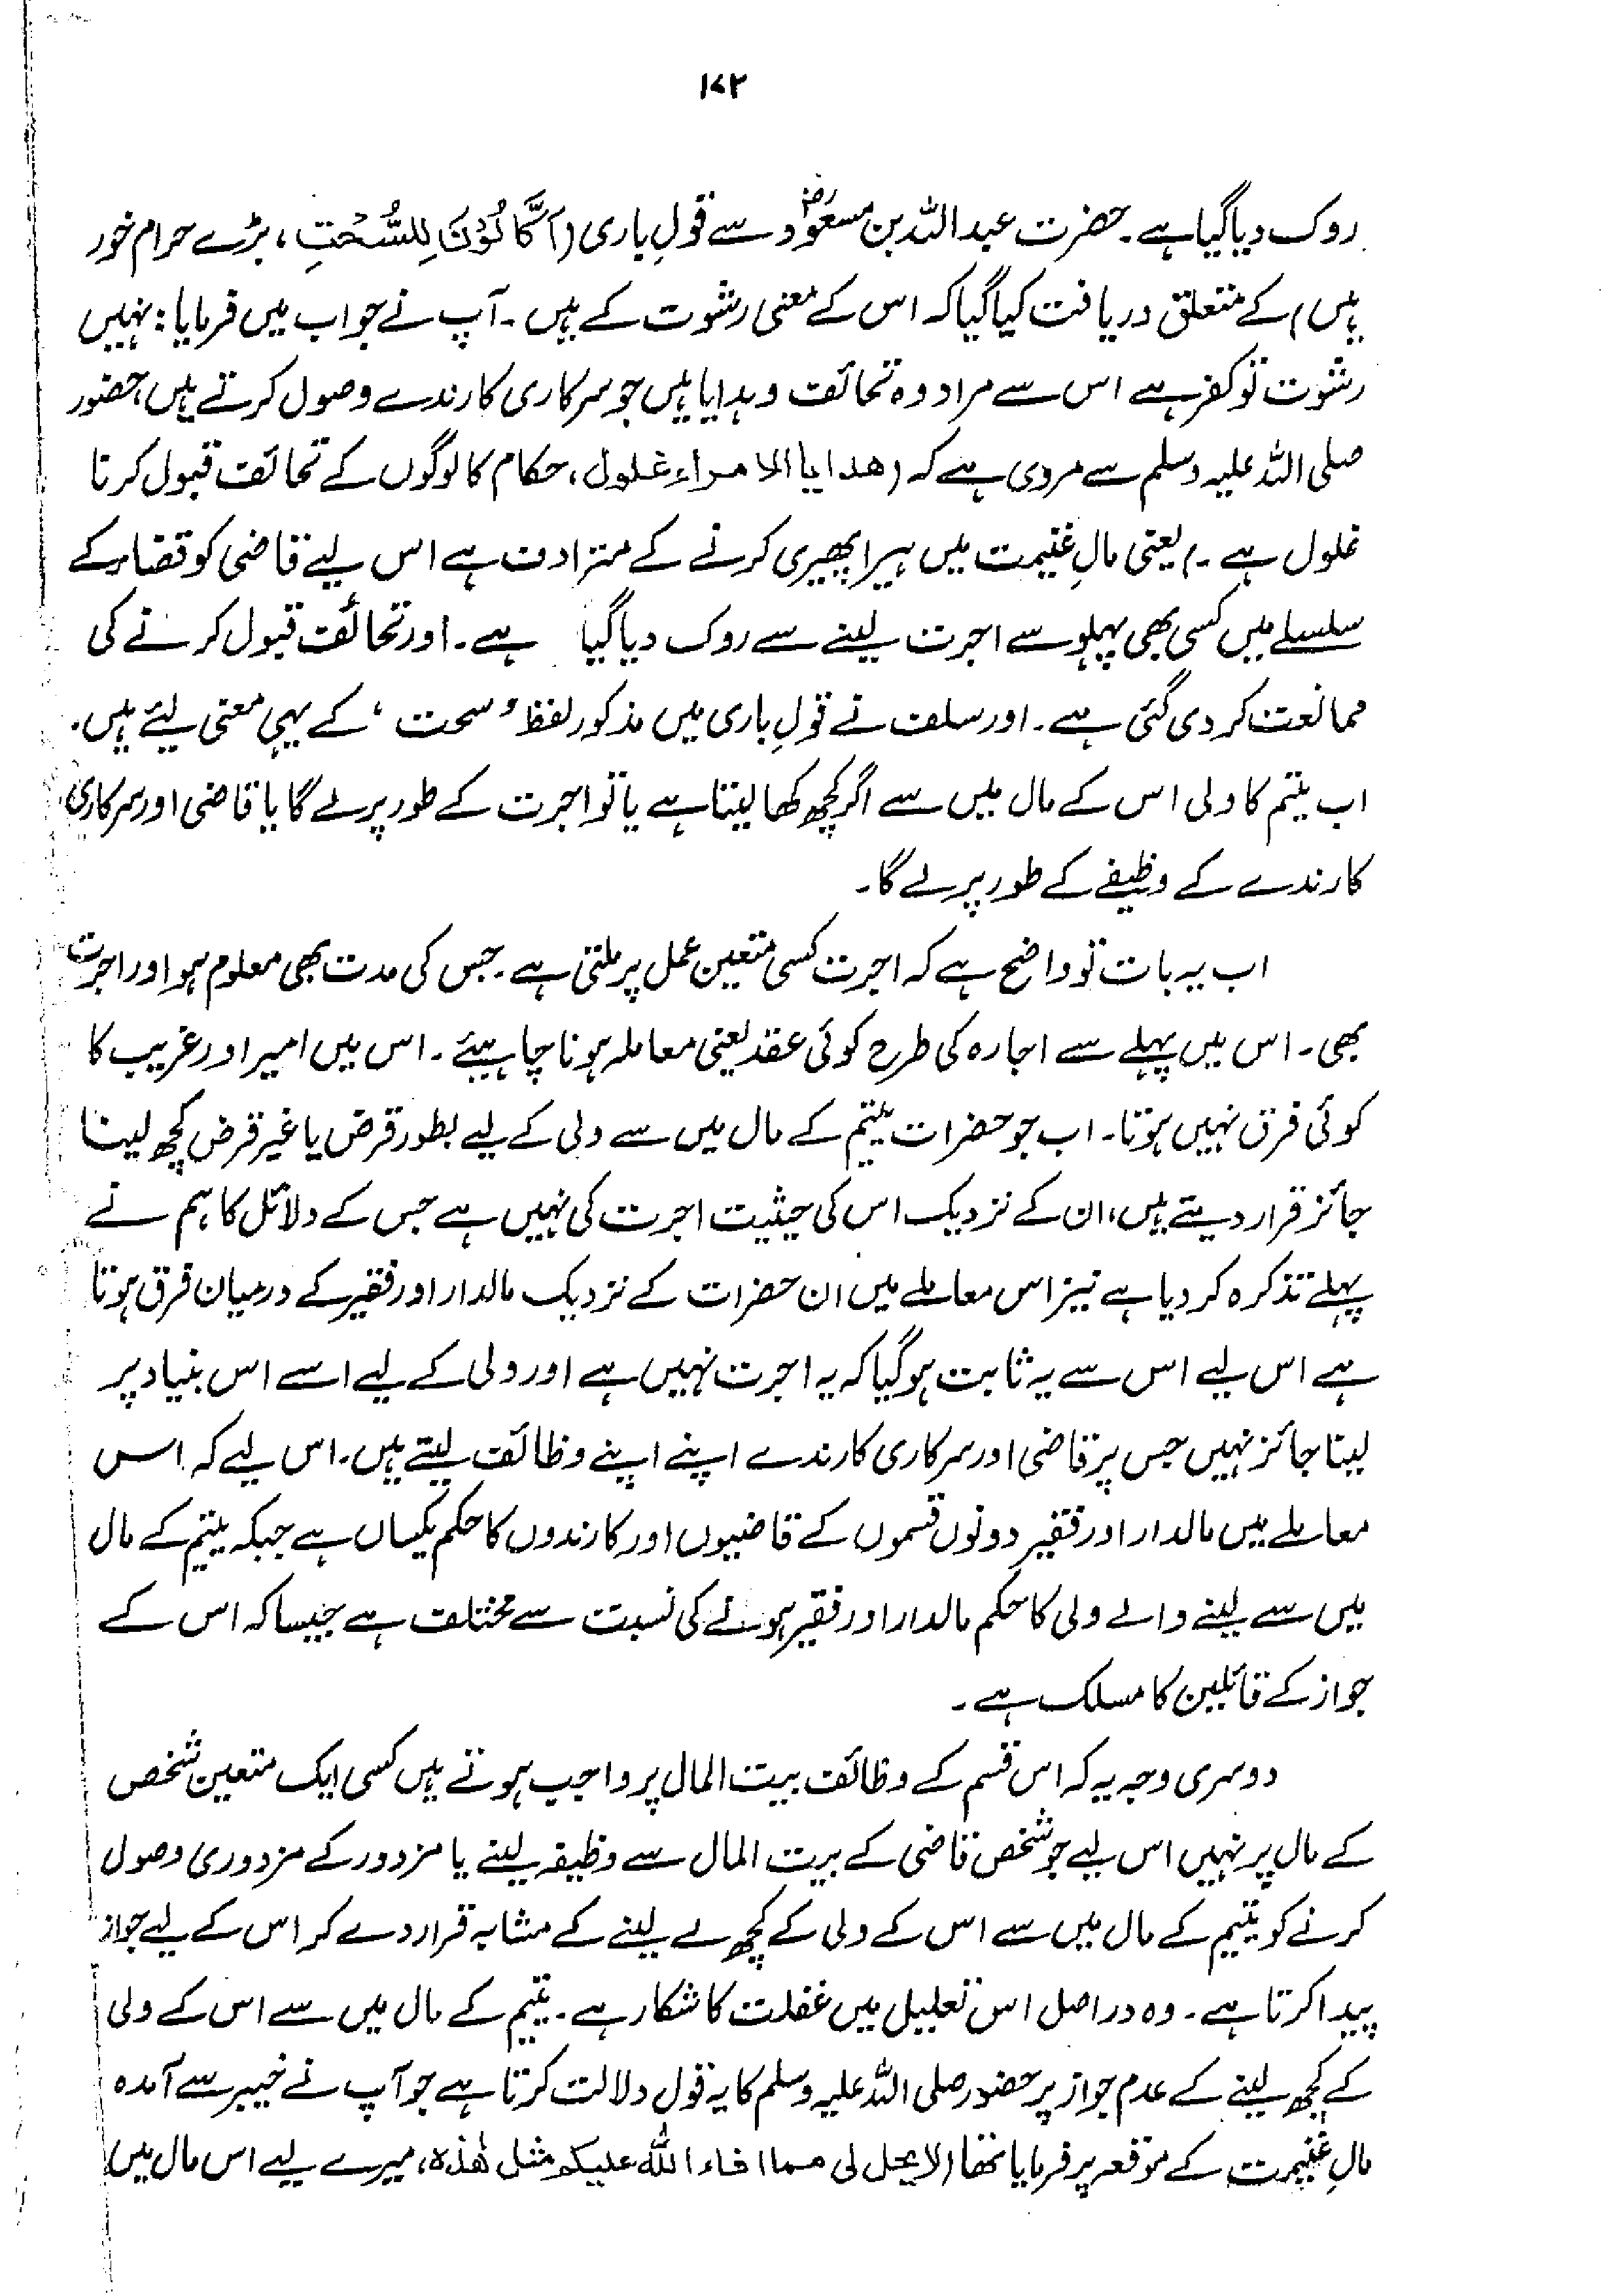 ۱۷۲
روک دیا گیا ہے۔ حضرت عبداللہ بن مسعودؓ سے قولِ باری (اَكَّالُوْنَ لِلسُّحْتِ، بڑے حرام خور
ہیں) کے متعلق دریافت کیا گیا کہ اس کے معنی رشوت کے ہیں۔ آپ نے جواب میں فرمایا: نہیں
رشوت تو کفر ہے اس سے مراد وہ تحائف وہدایا ہیں جو سرکاری کارندے وصول کرتے ہیں، حضور
صلی اللہ علیہ وسلم سے مروی ہے کہ (ھدایا الامراء غلول، حکام کا لوگوں کے تحائف قبول کرتا
غلول ہے۔) یعنی مالِ غنیمت میں ہیرا پھیری کرنے کے مترادف ہے اس لیے قاضی کو قضاء کے
سلسلے میں کسی بھی پہلو سے اجرت لینے سے روک دیا گیا ہے۔ اور تحائف قبول کرنے کی
ممانعت کر دی گئی ہے۔ اور سلف نے قولِ باری میں مذکور لفظ ’سحت‘ کے یہی معنی لیئے ہیں۔
اب یتیم کا ولی اس کے مال میں سے اگر کچھ کھا لیتا ہے یا تو اجرت کے طور پر لے گا یا قاضی اور سرکاری
کارندے کے وظیفے کے طور پر لے گا۔
اب یہ بات تو واضح ہے کہ اجرت کسی متعین عمل پر ملتی ہے۔ جس کی مدت بھی معلوم ہو اور اجرت
بھی۔ اس میں پہلے سے اجارہ کی طرح کوئی عقد یعنی معاملہ ہونا چاہیئے۔ اس میں امیر اور غریب کا
کوئی فرق نہیں ہوتا۔ اب جو حضرات یتیم کے مال میں سے ولی کے لیے بطور قرض یا غیر قرض کچھ لینا
جائز قرار دیتے ہیں، ان کے نزدیک اس کی حیثیت اجرت کی نہیں ہے جس کے دلائل کا ہم نے
پہلے تذکرہ کر دیا ہے نیز اس معاملے میں ان حضرات کے نزدیک مالدار اور فقیر کے درمیان فرق ہوتا
ہے اس لیے اس سے یہ ثابت ہو گیا کہ یہ اجرت نہیں ہے اور ولی کے لیے اسے اس بنیاد پر
لینا جائز نہیں جس پر قاضی اور سرکاری کارندے اپنے اپنے وظائف لیتے ہیں۔ اس لیے کہ اس
معاملے میں مالدار اور فقیر دونوں قسموں کے قاضیوں اور کارندوں کا حکم یکساں ہے جبکہ یتیم کے مال
میں سے لینے والے ولی کا حکم مالدار اور فقیر ہونے کی نسبت سے مختلف ہے جیسا کہ اس کے
جواز کے قائلین کا مسلک ہے۔
دوسری وجہ یہ کہ اس قسم کے وظائف بیت المال پر واجب ہوتے ہیں کسی ایک متعین شخص
کے مال پر نہیں اس لیے جو شخص قاضی کے بیت المال سے وظیفہ لینے یا مزدور کے مزدوری وصول
کرنے کو یتیم کے مال میں سے اس کے ولی کے کچھ لے لینے کے مشابہ قرار دے کر اس کے لیے جواز
پیدا کرتا ہے۔ وہ دراصل اس تعلیل میں غفلت کا شکار ہے۔ یتیم کے مال میں سے اس کے ولی
کے کچھ لینے کے عدم جواز پر حضور صلی اللہ علیہ وسلم کا یہ قول دلالت کرتا ہے جو آپ نے خیبر سے آمدہ
مالِ غنیمت کے موقعہ پر فرمایا تھا (لا یحل لی مما افاء اللہ علیکم مثل ھٰذہ، میرے لیے اس مال میں